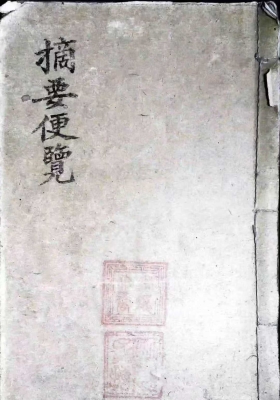 摘要便覽